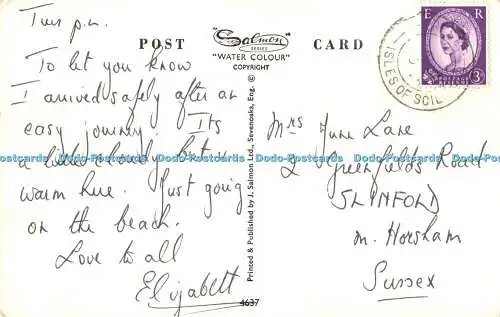 Tues p.m.
POST
Salmon
SERIES
"WATER COLOUR"
COPYRIGHT
CARD
E R
POSTAGE REVENUE
3D
ISLES OF SCIL
To let you know
I arrived safely after an
easy journey. Its
a little cloudy but
warm here. Just going
on the beach.
Love to all
Elizabeth
Printed & Published by J. Salmon Ltd., Sevenoaks, Eng. ©
4637
Mrs June Lane
2 Greenfields Road
SLINFORD
nr. Horsham
Sussex
Dodo-Postcards Dodo-Postcards Dodo-Postcards Dodo-Postcards